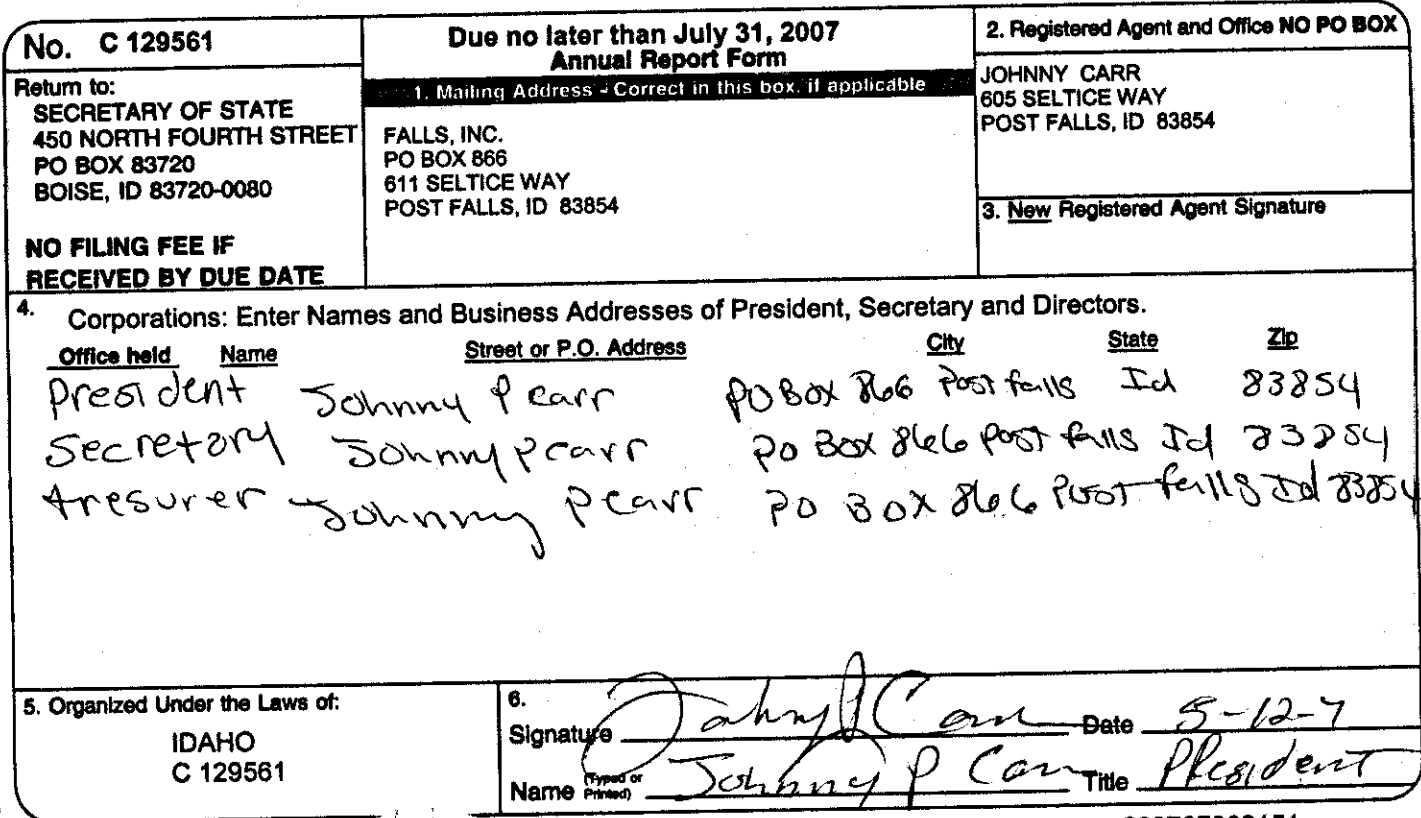 No. C 129561
Return to:
SECRETARY OF STATE
450 NORTH FOURTH STREET
PO BOX 83720
BOISE, ID 83720-0080
NO FILING FEE IF
RECEIVED BY DUE DATE
Due no later than July 31, 2007
Annual Report Form
1. Mailing Address - Correct in this box, if applicable
FALLS, INC.
PO BOX 866
611 SELTICE WAY
POST FALLS, ID 83854
2. Registered Agent and Office NO PO BOX
JOHNNY CARR
605 SELTICE WAY
POST FALLS, ID 83854
3. New Registered Agent Signature
4. Corporations: Enter Names and Business Addresses of President, Secretary and Directors.
Office held Name Street or P.O. Address City State Zip
President Johnny P carr PO BOX 866 Post falls Id 83854
Secretary Johnny P carr PO Box 866 post falls Id 83854
tresurer Johnny P carr PO BOX 866 Post falls Id 83854
5. Organized Under the Laws of:
IDAHO
C 129561
6.
Signature Johnny P Carr Date 5-12-7
Name (Typed or Printed) Johnny P Carr Title President